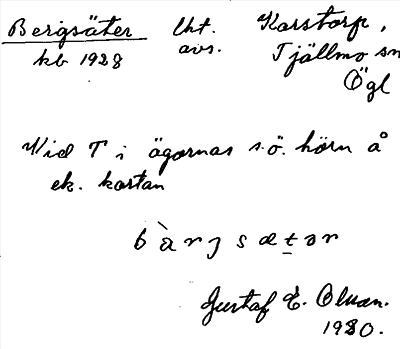 Bergsäter lht. Karstorp,
kb 1928 avs. Tjällmo sn
Ögl
Vid T i ägornas s.ö. hörn å
ek. kartan
bàrjsætər
Gustaf E. Olsson.
1930.